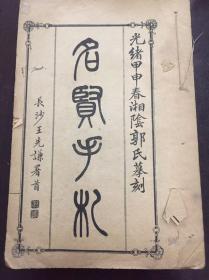 光緒甲申春湘陰郭氏摹刻
名賢手札
長沙王先謙署首